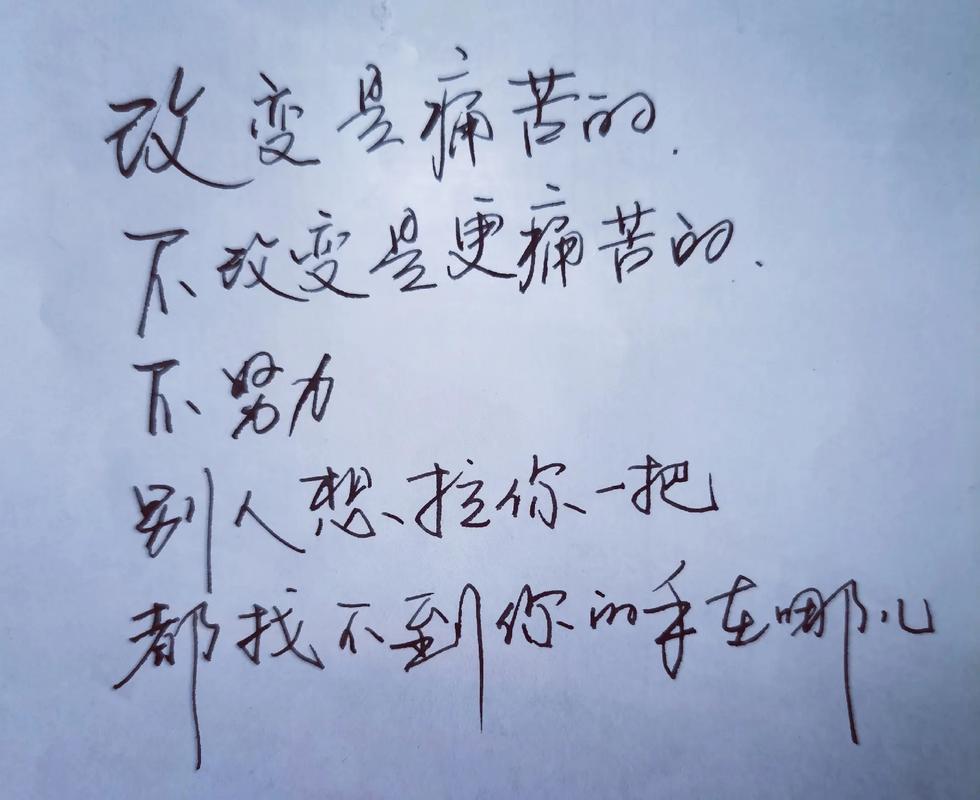 改变是痛苦的.
不改变是更痛苦的.
不努力
别人想拉你一把
都找不到你的手在哪儿